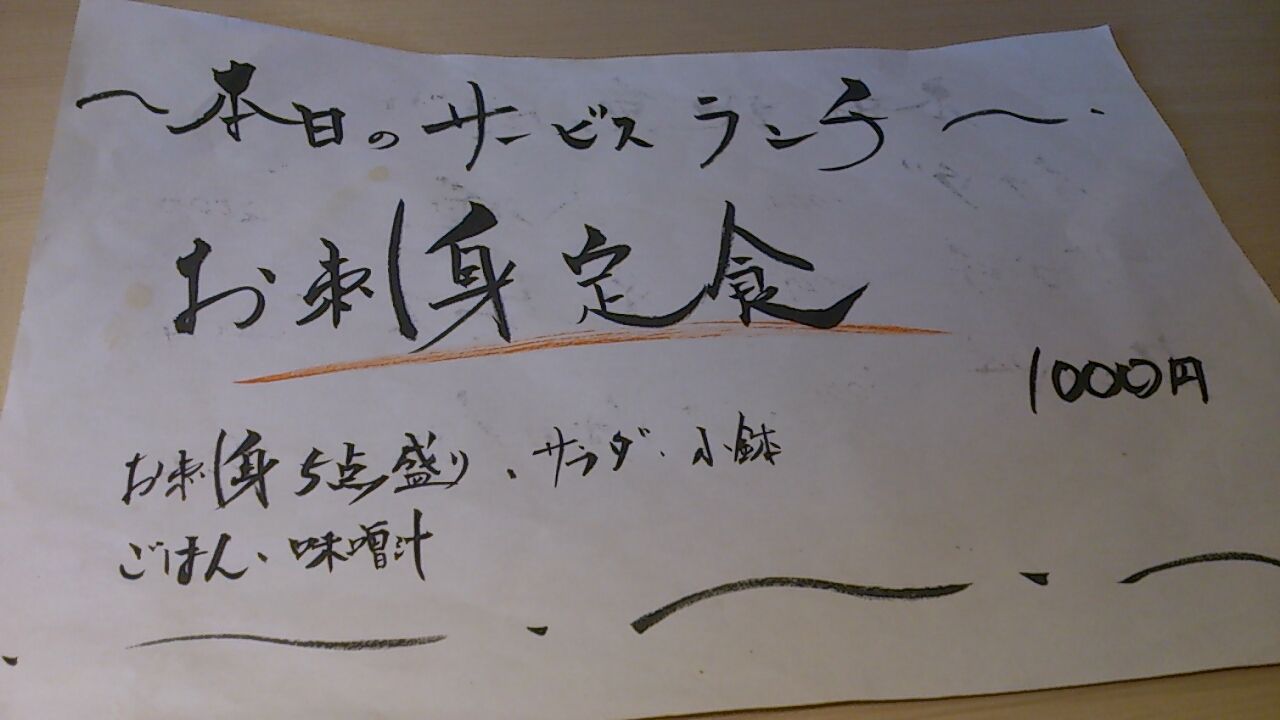 〜本日のサービスランチ〜
お刺身定食
1000円
お刺身5点盛り、サラダ、小鉢
ごはん、味噌汁